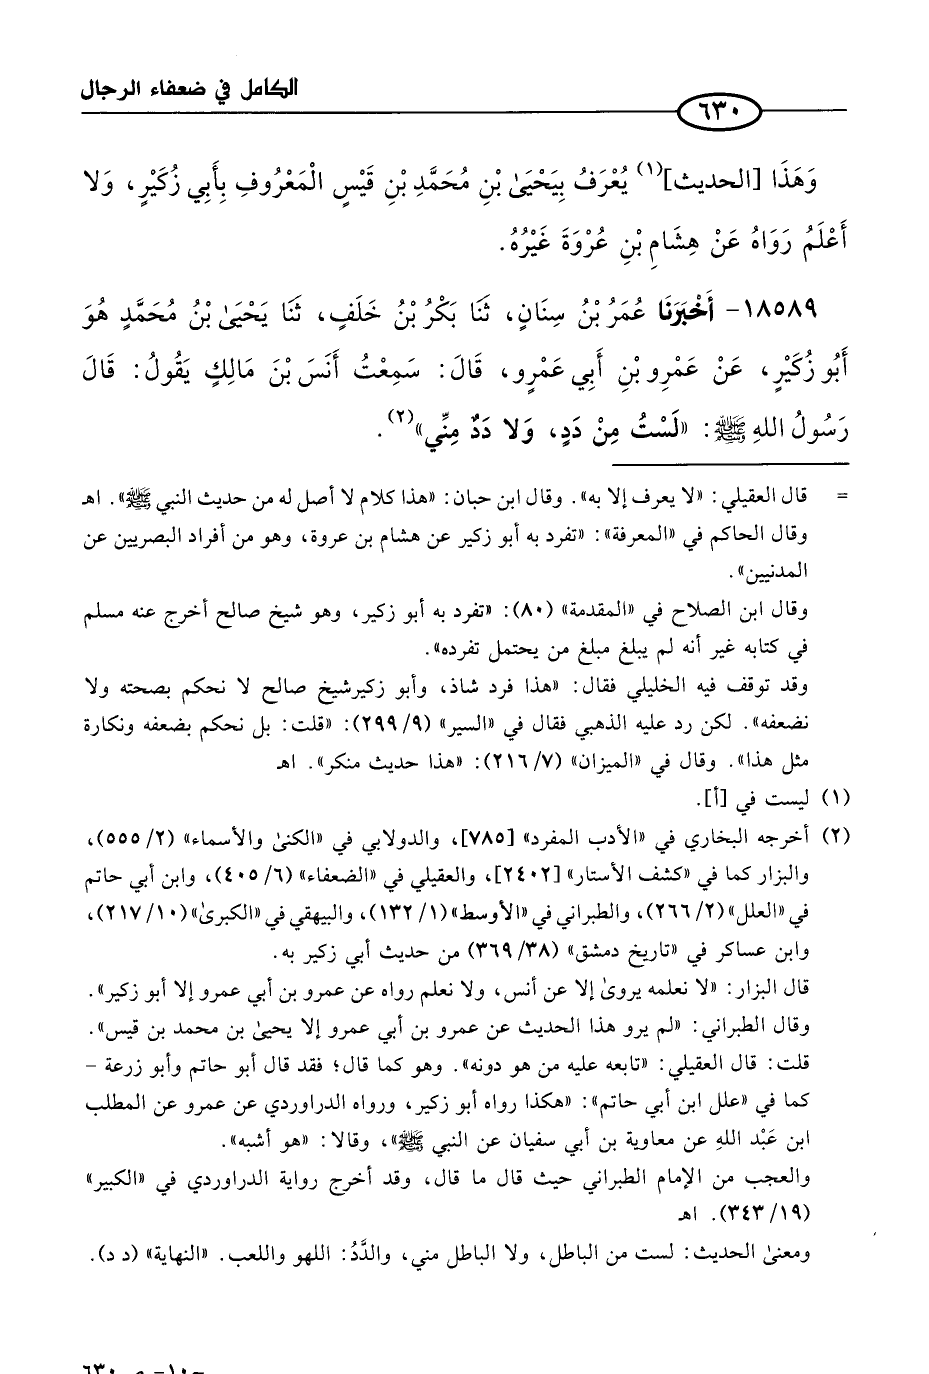 الكامل في ضعفاء الرجال
٦٣٠
وَهَذَا [الحديث](١) يُعْرَفُ بِيَحْيَىٰ بْنِ مُحَمَّدِ بْنِ قَيْسٍ الْمَعْرُوفِ بِأَبِي زُكَيْرٍ، وَلا
أَعْلَمُ رَوَاهُ عَنْ هِشَامِ بْنِ عُرْوَةَ غَيْرُهُ.
١٨٥٨٩- أَخْبَرَنَا عُمَرُ بْنُ سِنَانٍ، ثَنَا بَكْرُ بْنُ خَلَفٍ، ثَنَا يَحْيَىٰ بْنُ مُحَمَّدٍ هُوَ
أَبُو زُكَيْرٍ، عَنْ عَمْرِو بْنِ أَبِي عَمْرٍو، قَالَ: سَمِعْتُ أَنَسَ بْنَ مَالِكٍ يَقُولُ: قَالَ
رَسُولُ اللهِ ﷺ: «لَسْتُ مِنْ دَدٍ، وَلا دَدٌ مِنِّي»(٢).
= قال العقيلي: «لا يعرف إلا به». وقال ابن حبان: «هذا كلام لا أصل له من حديث النبي ﷺ». اهـ
وقال الحاكم في «المعرفة»: «تفرد به أبو زكير عن هشام بن عروة، وهو من أفراد البصريين عن
المدنيين».
وقال ابن الصلاح في «المقدمة» (٨٠): «تفرد به أبو زكير، وهو شيخ صالح أخرج عنه مسلم
في كتابه غير أنه لم يبلغ مبلغ من يحتمل تفرده».
وقد توقف فيه الخليلي فقال: «هذا فرد شاذ، وأبو زكيرشيخ صالح لا نحكم بصحته ولا
نضعفه». لكن رد عليه الذهبي فقال في «السير» (٢٩٩/٩): «قلت: بل نحكم بضعفه ونكارة
مثل هذا». وقال في «الميزان» (٢١٦/٧): «هذا حديث منكر». اهـ
(١) ليست في [أ].
(٢) أخرجه البخاري في «الأدب المفرد» [٧٨٥]، والدولابي في «الكنىٰ والأسماء» (٢/ ٥٥٥)،
والبزار كما في «كشف الأستار» [٢٤٠٢]، والعقيلي في «الضعفاء» (٦/ ٤٠٥)، وابن أبي حاتم
في «العلل» (٢/ ٢٦٦)، والطبراني في «الأوسط» (١/ ١٣٢)، والبيهقي في «الكبرىٰ» (١٠/ ٢١٧)،
وابن عساكر في «تاريخ دمشق» (٣٨/ ٣٦٩) من حديث أبي زكير به.
قال البزار: «لا نعلمه يروىٰ إلا عن أنس، ولا نعلم رواه عن عمرو بن أبي عمرو إلا أبو زكير».
وقال الطبراني: «لم يرو هذا الحديث عن عمرو بن أبي عمرو إلا يحيىٰ بن محمد بن قيس».
قلت: قال العقيلي: «تابعه عليه من هو دونه». وهو كما قال؛ فقد قال أبو حاتم وأبو زرعة –
كما في «علل ابن أبي حاتم»: «هكذا رواه أبو زكير، ورواه الدراوردي عن عمرو عن المطلب
ابن عَبْد اللهِ عن معاوية بن أبي سفيان عن النبي ﷺ»، وقالا: «هو أشبه».
والعجب من الإمام الطبراني حيث قال ما قال، وقد أخرج رواية الدراوردي في «الكبير»
(١٩/ ٣٤٣). اهـ
ومعنىٰ الحديث: لست من الباطل، ولا الباطل مني، والدَّدُ: اللهو واللعب. «النهاية» (د د).
-١٠- ص ٦٣٠